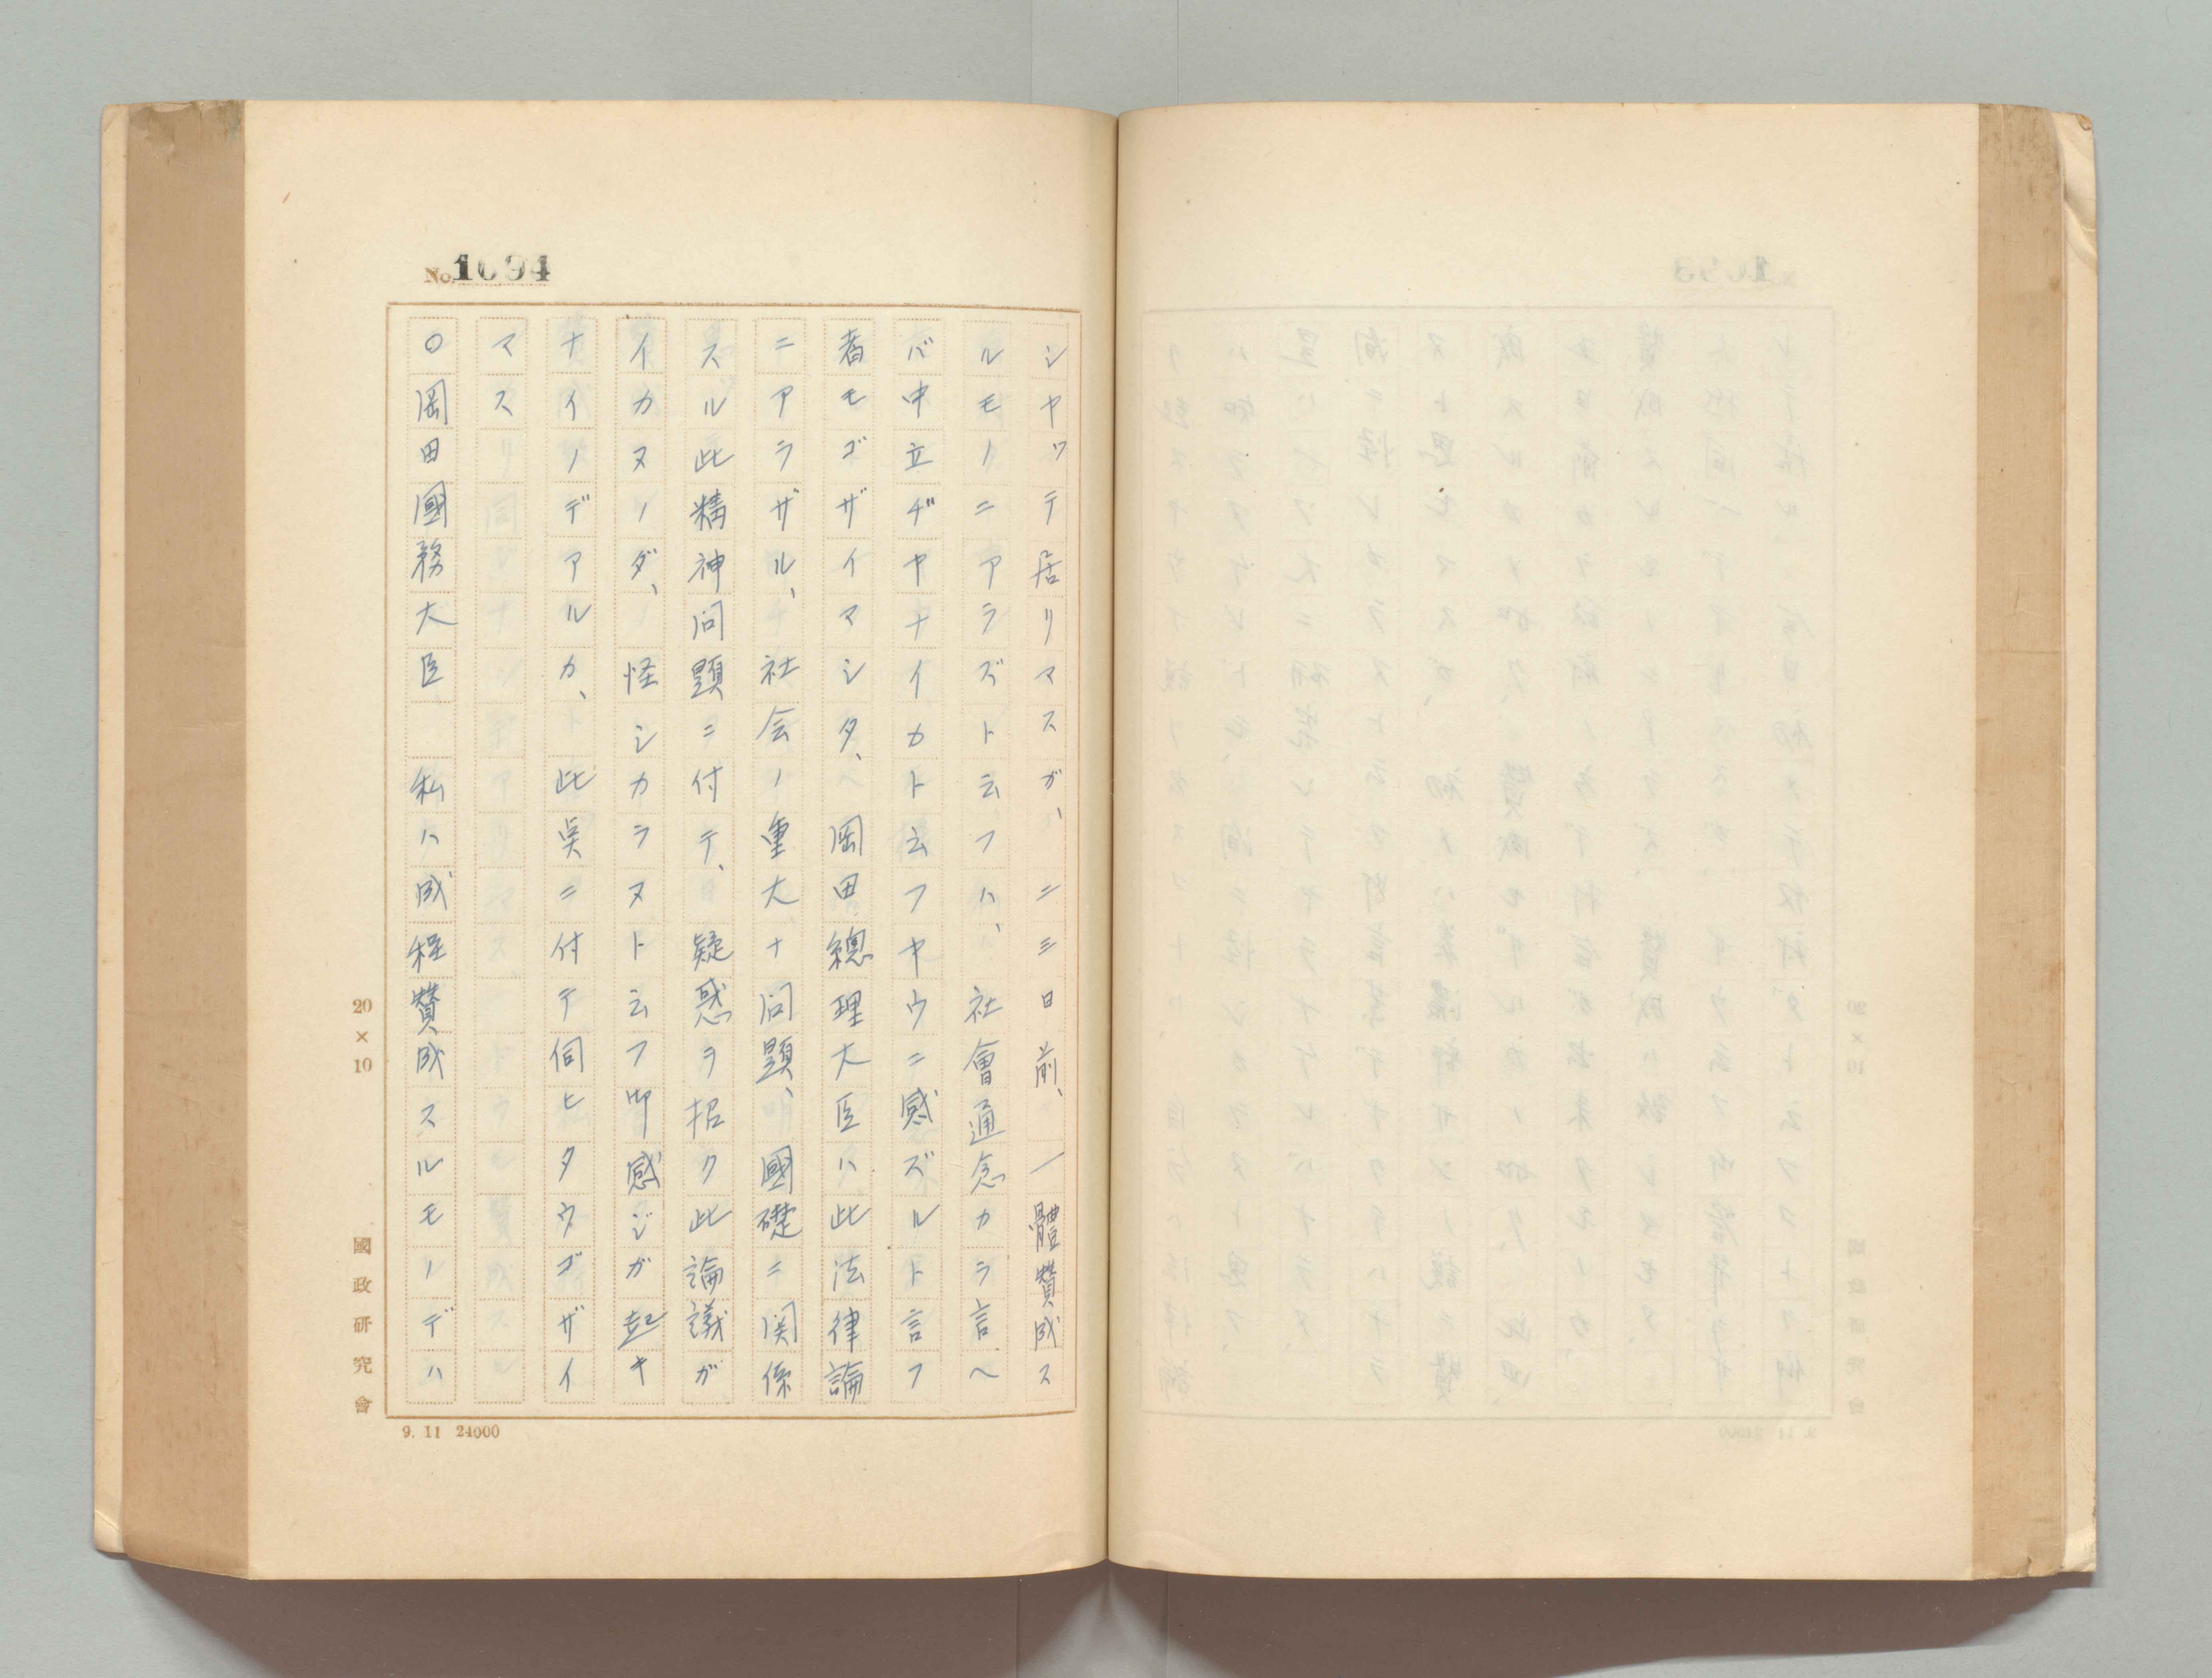 No. 1094
シヤッテ居リマスガ、二三日前、一體賛成ス
ルモノニアラズト云フハ、社會通念カラ言ヘ
バ中立ヂヤナイカト云フヤウニ感ズルト言フ
者モゴザイマシタ、岡田總理大臣ハ此法律論
ニアラザル、社会ノ重大ナ問題、國礎ニ関係
スル此精神問題ニ付テ、疑惑ヲ招ク此論議ガ
イカヌノダ、怪シカラヌト云フ御感ジガ起キ
ナイノデアルカ、此奌ニ付テ伺ヒタウゴザイ
マス
〇岡田國務大臣 私ハ成程賛成スルモノデハ
20×10
國政研究會
9. 11 24000